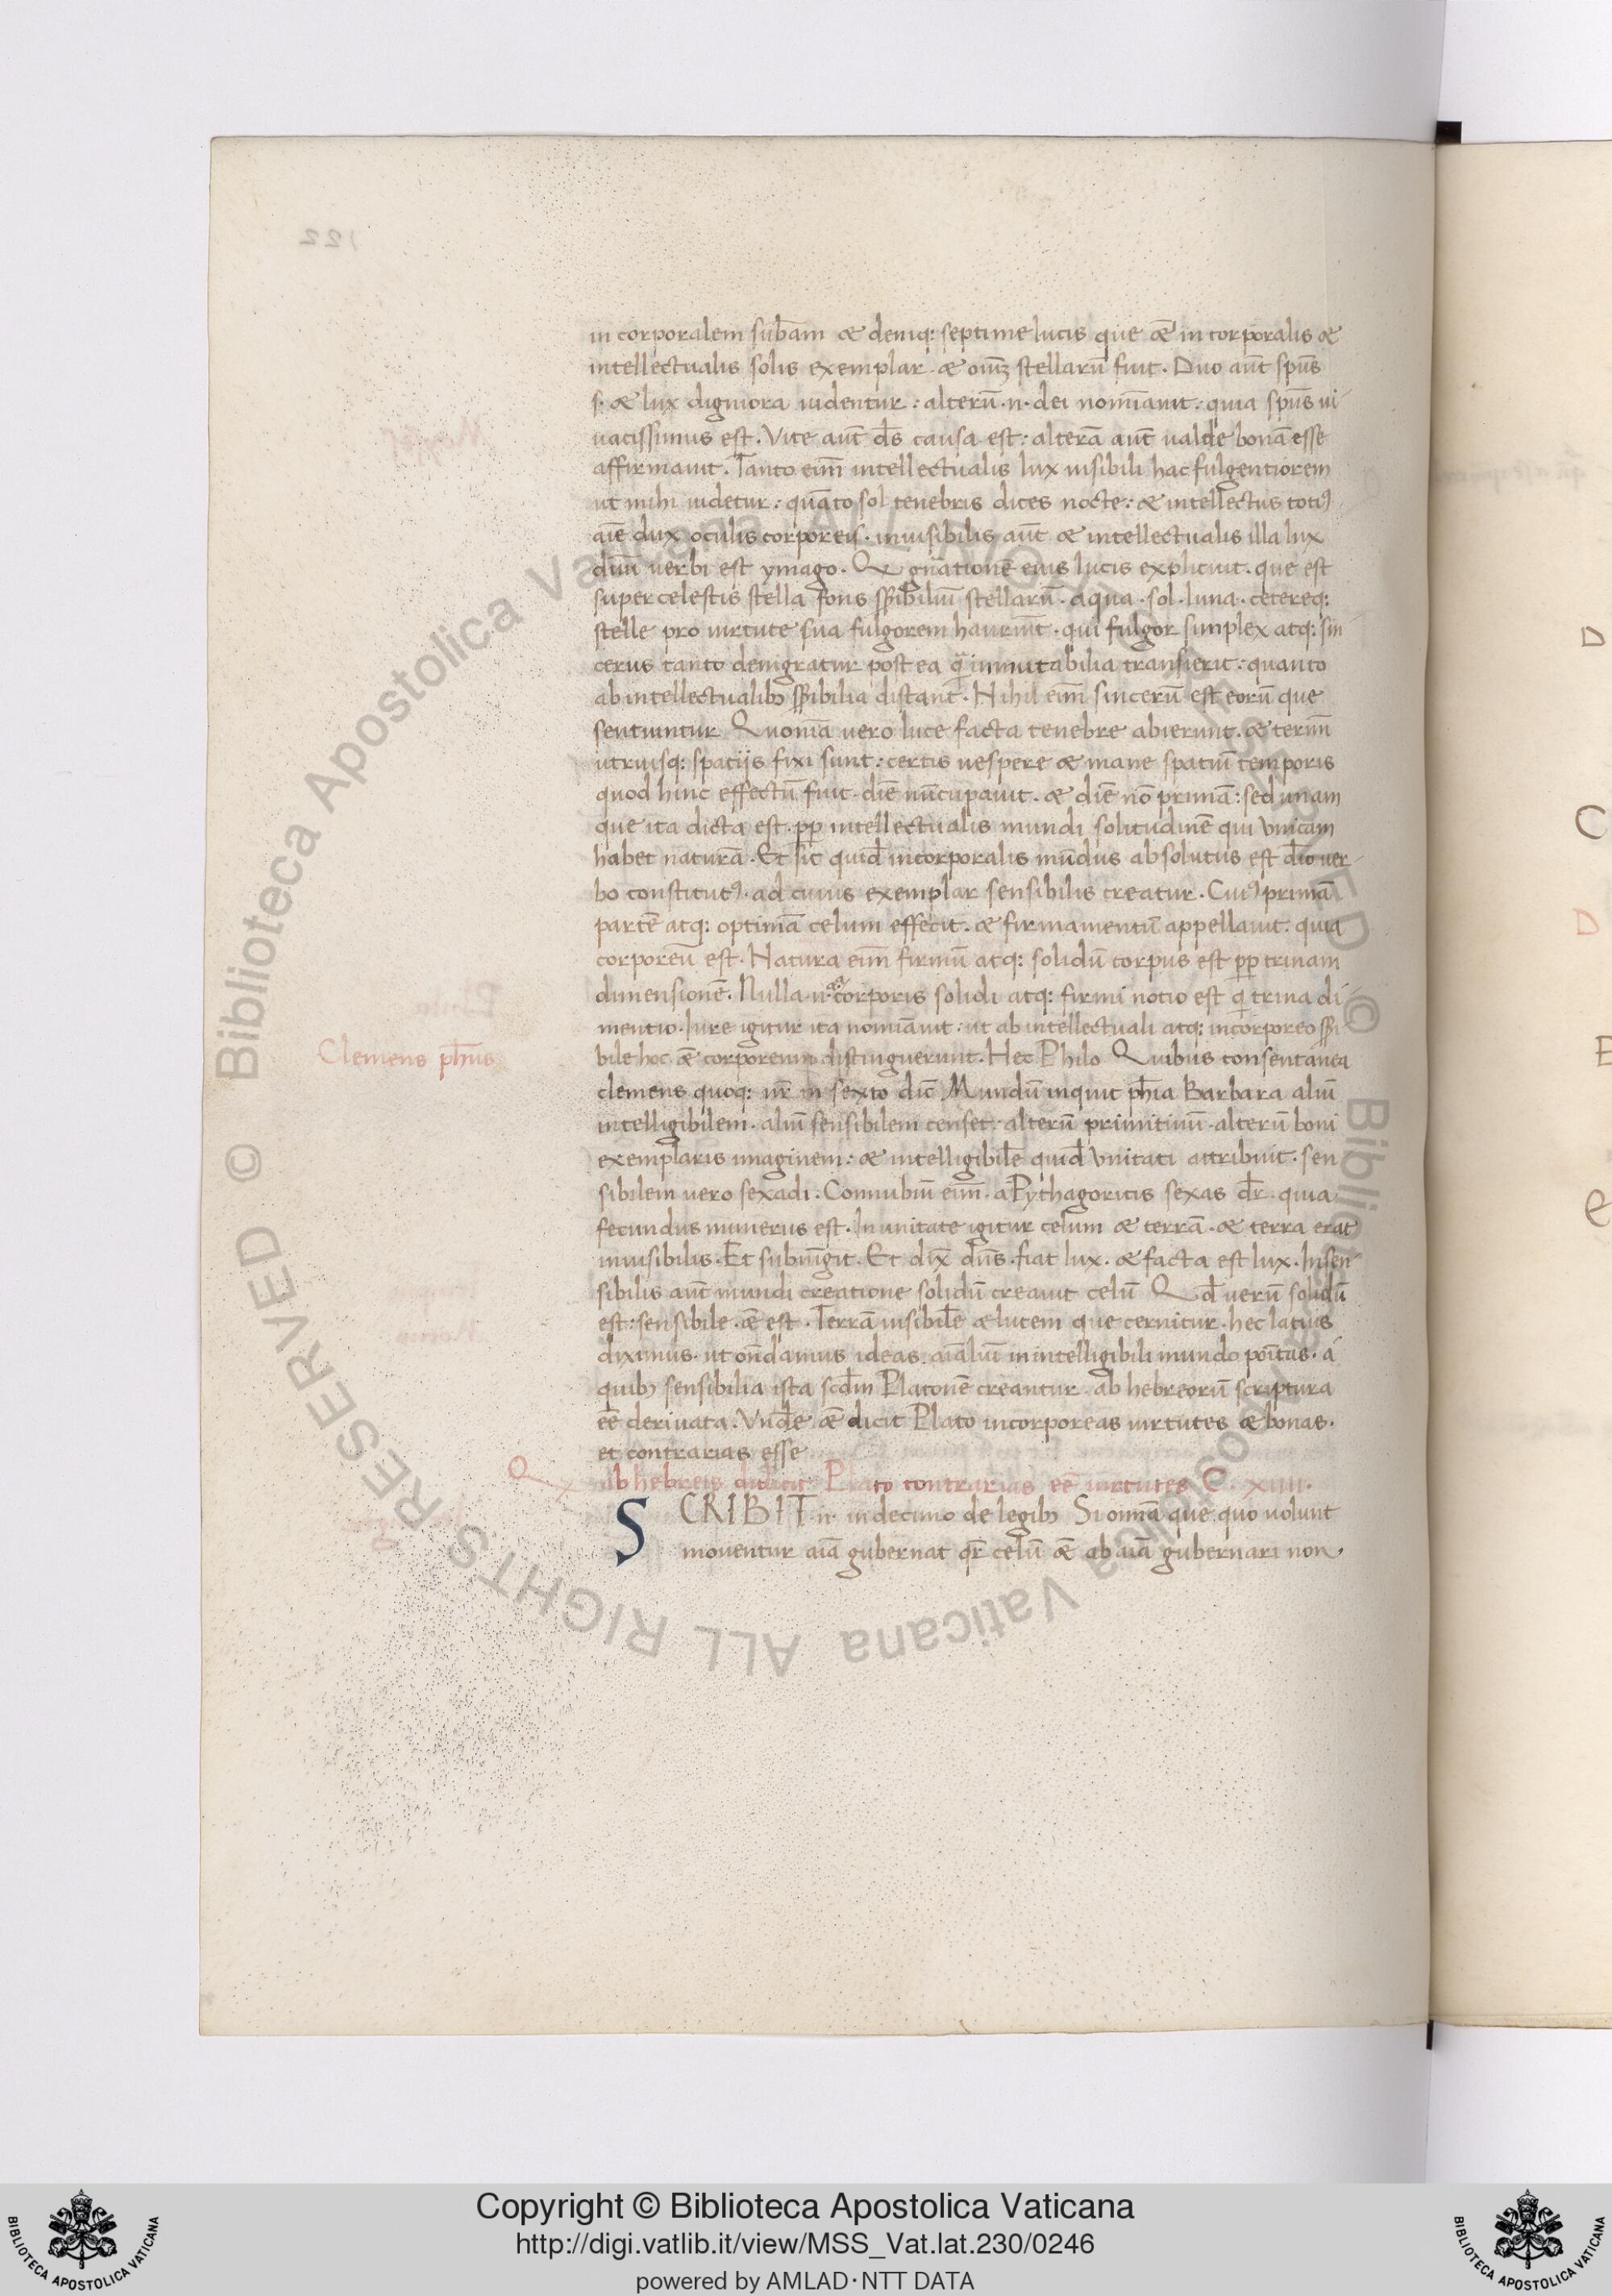 in corporalem sub̄am & deniq: septime lucis que & in corporalis &
intellectualis solis exemplar · & oīuꝫ stellarū fuit · Duo aūt spūs
s· & lux digniora uidentur : alterū · n · dei nomīauit : quia spūs ui-
uacissimus est · Vite aūt d̄s causa est : alterā aūt ualde bonā esse
affirmauit · Tanto eim̄ intellectualis lux uisibili hac fulgentiorem
ut mihi uidetur : quāto sol tenebris dices nocte : & intellectus totiꝰ
aīe dux oculis corporeis · inuisibilis aūt & intellectualis illa lux
diuī uerbi est ymago · Q gn̄ationē eius lucis explicuit · que est
super celestis stella fons ss̄ibiliū stellarū · aqua · sol · luna · cetereq:
stelle pro uirtute sua fulgorem hauriūt · qui fulgor simplex atq: sin
cerus tanto denigratur post ea q̄ inmutabilia transierit : quanto
ab intellectualibꝫ ss̄ibilia distant · Nihil eim̄ sincerū est eorū que
sentiuntur Quoniā uero luce facta tenebre abierunt · & termī
utriusq: spatijs fixi sunt : certis uespere & mane spatiū temporis
quod hinc effectū fuit · diē nūcupauit · & diē nō primā : sed unam
que ita dicta est · ꝓp intellectualis mundi solitudinē qui vnicam
habet naturā · Et sic quid̄ incorporalis mūdus absolutus est dīo uer-
bo constitutꝰ · ad cuius exemplar sensibilis creatur · Cuiꝰ primā
partē atq: optimā celum effecit · & firmamentū appellauit : quia
corporeū est · Natura eim̄ firmū atq: solidū corpus est ꝓp trinam
dimensionē · Nulla · n · corporis solidi atq: firmi notio est q̄ trina di-
mentio · Iure igitur ita nomīauit · ut ab intellectuali atq: incorporeo ss̄i-
bile hoc & corporeum distinguerunt · Hec Philo Quibus consentanea
clemens quoq: nr̄ in sexto dic̄ Mundū inquit ph̄ia Barbara aliū
intelligibilem · aliū sensibilem censet : alterū primitiuū · alterū boni
exemplaris imaginem : & intelligibilē quid̄ vnitati attribuit · sen
sibilem uero sexadi · Connubiū eim̄ · a Pythagoricis sexas dr̄ · quia
fecundus numerus est · In unitate igitur celum & terrā · & terra erat
inuisibilis · Et subiūgit · Et dix̄ dn̄s · fiat lux · & facta est lux · In sen-
sibilis aūt mundi creatione solidū creauit celū Qd̄ uerū solidū
est : sensibile · & est · Terrā uisibilē & lucem que cernitur · hec latius
diximus · ut on̄damus ideas · aīaliū in intelligibili mundo poītas · a
quibꝫ sensibilia ista scd̄m Platonē creantur · ab hebreorū scriptura
eē deriuata · Vnde & dicit Plato incorporeas uirtutes & bonas ·
et contrarias esse
Clemens ph̄us
Q ab hebreis didicit Plato contrarias eē uirtutes C · xiiii ·
SCRIBIT · n · in decimo de legibꝫ Si omīa que quo uolunt
mouentur aīa gubernat qr̄ celū & ab aīa gubernari non ·
Copyright © Biblioteca Apostolica Vaticana
http://digi.vatlib.it/view/MSS_Vat.lat.230/0246
powered by AMLAD·NTT DATA
BIBLIOTECA APOSTOLICA VATICANA
BIBLIOTECA APOSTOLICA VATICANA
© Biblioteca Apostolica Vaticana ALL RIGHTS RESERVED
© Biblioteca Apostolica Vaticana ALL RIGHTS RESERVED